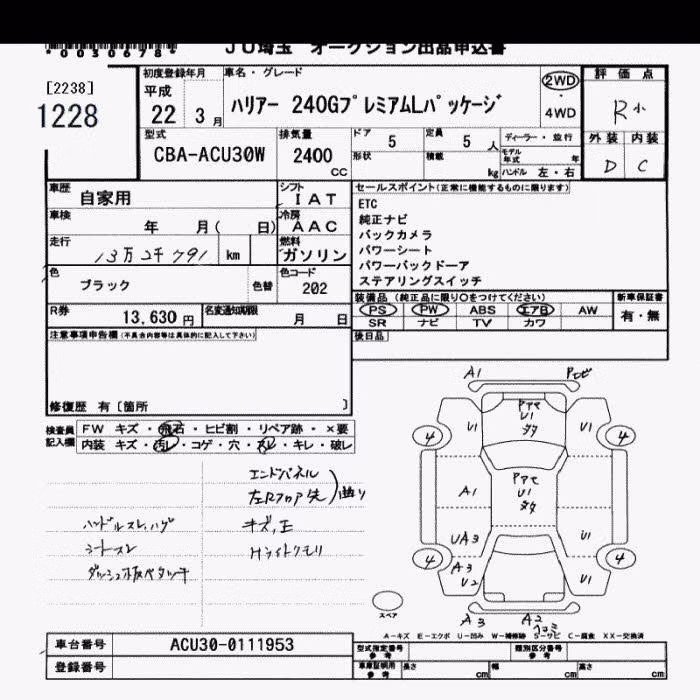 *0030678*
JU埼玉 オークション出品申込書
[2238]
1228
初度登録年月
平成
22 3月
車名・グレード
ハリアー 240GプレミアムLパッケージ
2WD
・
4WD
評価点
R小
外装 内装
D C
型式
CBA-ACU30W
排気量
2400
CC
ドア 5
定員 5 人
形状
積載 kg
ディーラー・並行
モデル年式 年
ハンドル 左・右
車歴
自家用
シフト
IAT
車検
年 月( 日)
冷房
AAC
走行
13万2千791 km
燃料
ガソリン
色
ブラック
色替
色コード
202
セールスポイント(正常に機能するものに限ります)
ETC
純正ナビ
バックカメラ
パワーシート
パワーバックドーア
ステアリングスイッチ
R券
13,630 円
名変通知期限
月 日
装備品 (純正品に限り○をつけてください)
PS PW ABS エアB AW
SR ナビ TV カワ
新車保証書
有・無
注意事項申告欄(不具合内容等は具体的に記入して下さい)
後日品
修復歴 有〔箇所 〕
検査員
記入欄
FW キズ・飛石・ヒビ割・リペア跡・×要
内装 キズ・汚レ・コゲ・穴・スレ・キレ・破レ
エンドパネル
左Rフロア先
曲り
ハンドルスレ,ハゲ
シートスレ
キズ,エ
Hライトクモリ
A1
U1
U1
4
4
A1
U1
U1
UA3
U1
A3
U2
U1
4
4
A3
A2
スペア
A-キズ E-エクボ U-凹み W-補修跡 S-サビ C-腐食 XX-交換済
車台番号
ACU30-0111953
登録番号
型式指定番号
参考
類別区分番号
参考
車庫証明用
参考
長さ cm
幅 cm
高さ cm